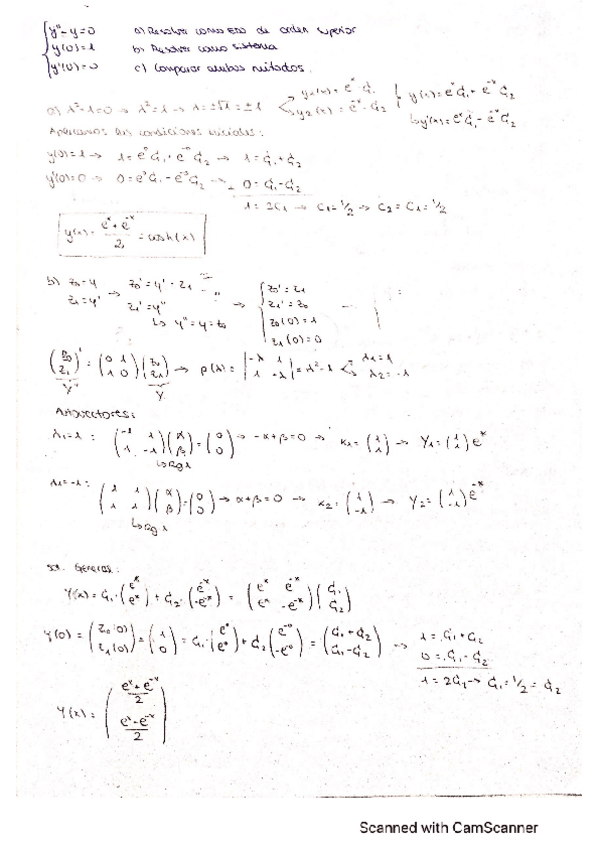 { y''-y=0   a) Resolver como EDO de orden superior
y(0)=1   b) Resolver como sistema
y'(0)=0   c) Comparar ambos métodos.
a) λ²-1=0 → λ²=1 → λ=±√1=±1 < y₁(x)=eˣ·C₁ y₂(x)=e⁻ˣ·C₂ { y(x)=eˣC₁+e⁻ˣC₂ ↳ y'(x)=eˣC₁-e⁻ˣC₂
las condiciones iniciales:
y(0)=1 → 1=e⁰C₁+e⁻⁰C₂ → 1=C₁+C₂
y'(0)=0 → 0=e⁰C₁-e⁻⁰C₂ → 0=C₁-C₂
1=2C₁ → C₁=1/2 → C₂=C₁=1/2
y(x)=(eˣ+e⁻ˣ)/2=cosh(x)
b) z₀=y z₁=y' → z₀'=y'=z₁ z₁'=y'' ↳ y''=y=z₀ → { z₀'=z₁ z₁'=z₀ z₀(0)=1 z₁(0)=0
(z₀ z₁)'=(0 1; 1 0)(z₀ z₁) → p(λ)=|-λ 1; 1 -λ|=λ²-1 < λ₁=1 λ₂=-1
Y' Y
Autovectores:
λ₁=1: (-1 1; 1 -1)(α β)=(0 0) → -α+β=0 → K₁=(1 1) → Y₁=(1 1)eˣ
↳ Rg 1
λ₁=-1: (1 1; 1 1)(α β)=(0 0) → α+β=0 → K₂=(1 -1) → Y₂=(1 -1)e⁻ˣ
↳ Rg 1
Sol. General:
Y(x)=C₁·(eˣ eˣ)+C₂·(e⁻ˣ -e⁻ˣ)=(eˣ e⁻ˣ; eˣ -e⁻ˣ)(C₁ C₂)
Y(0)=(z₀(0) z₁(0))=(1 0)=C₁·(e⁰ e⁰)+C₂(e⁻⁰ -e⁻⁰)=(C₁+C₂ C₁-C₂) → 1=C₁+C₂
0=C₁-C₂
1=2C₁ → C₁=1/2=C₂
Y(x)=((eˣ+e⁻ˣ)/2 (eˣ-e⁻ˣ)/2)
Scanned with CamScanner